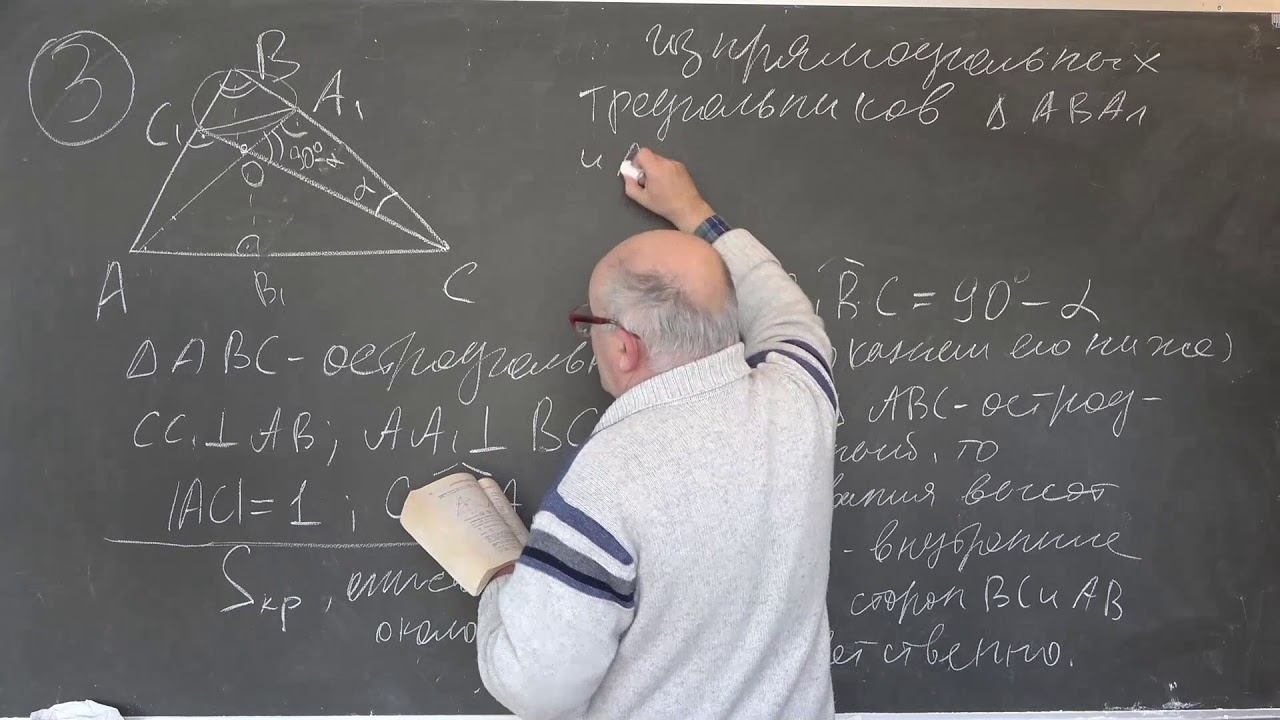 3
B
A₁
C₁
90°-α
α
O
A
B₁
C
из прямоугольных
треугольников Δ ABA₁
и
BC = 90° - α
ΔABC - остроугольн
его ниже)
CC₁ ⊥ AB; AA₁ ⊥ BC
ABC - остроу-
то
|AC| = 1;
высот
- внутренние
Sкр,
сторон BC и AB
около